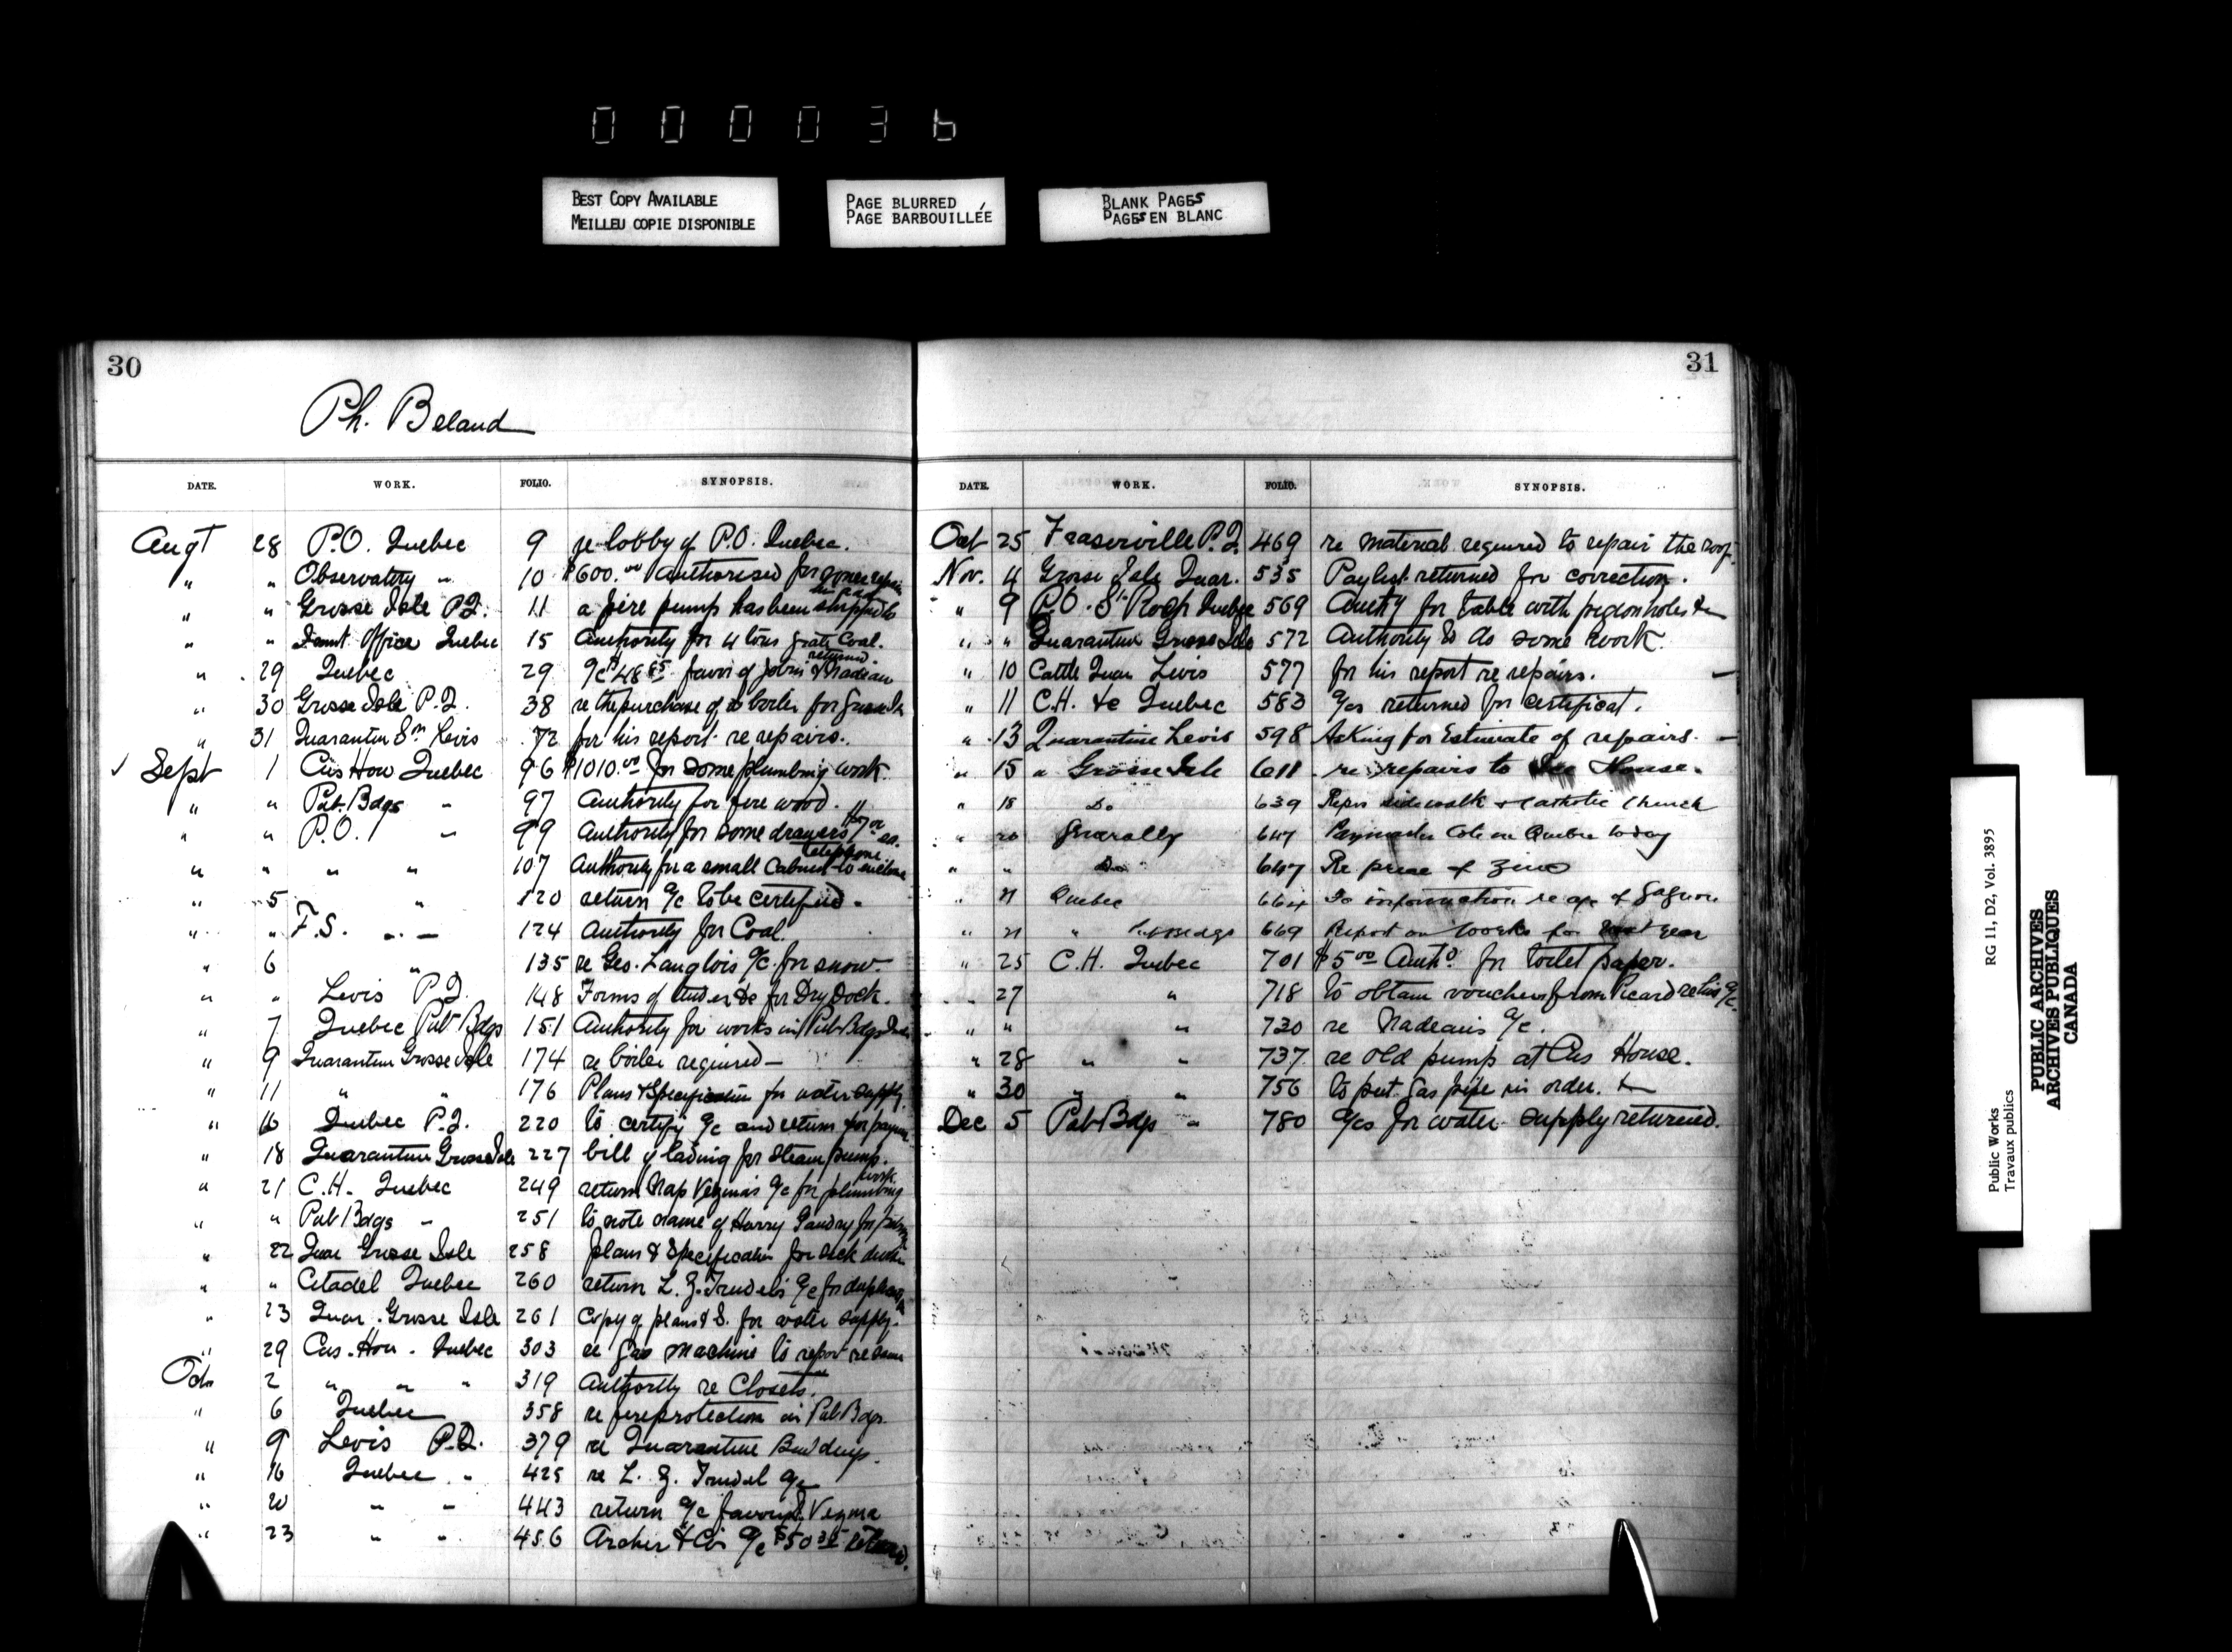 0 0 0 0 3 6
BEST COPY AVAILABLE
MEILLEU COPIE DISPONIBLE
PAGE BLURRED
PAGE BARBOUILLÉE
BLANK PAGES
PAGES EN BLANC
30
Ph. Beland
DATE. WORK. FOLIO. SYNOPSIS.
Augt 28 P.O. Quebec 9 re lobby of P.O. Quebec.
" " Observatory " 10 $600.00 authorised for some repairs
" " Grosse Isle P.Q. 11 a fire pump has been shipped to
" " Office Quebec 15 Authority for 4 tons grate Coal.
" 29 Quebec 29 a/c $48 85 favor of Jobin & Nadeau returned.
" 30 Grosse Isle P.Q. 38 re the purchase of a boiler for Grosse Isle
" 31 Quarantine Stn Levis 72 for his report re repairs.
✓ Sept 1 Cus Hou Quebec 96 $1010.00 for some plumbing work.
" " Pub. Bdgs " 97 Authority for fire wood.
" " P.O. " 99 Authority for some drawers 7 00 ea.
" " " " 107 Authority for a small Cabinet to enclose telephone
" 5 " 120 return a/c to be certified.
" " F.S. " 124 Authority for Coal.
" 6 " 135 re Geo. Langlois a/c for snow.
" " Levis P.Q. 148 Forms of tender &c for Dry Dock.
" 7 Quebec Pub Bdgs 151 Authority for works in Pub Bdgs
" 9 Quarantine Grosse Isle 174 re boiler required —
" 11 " " 176 Plans & Specification for water supply.
" 16 Quebec P.Q. 220 to certify a/c and return for payment
" 18 Quarantine Grosse Isle 227 bill of lading for steam pump.
" 21 C.H. Quebec 249 return Nap Vezina's a/c for plumbing work
" " Pub Bdgs " 251 to note name of Harry Gaudry for
" 22 Quar Grosse Isle 258 plans & Specification for
" " Citadel Quebec 260 return L. Z. Trudel's a/c for duplicate
" 23 Quar. Grosse Isle 261 Copy of plans & S. for water supply.
" 29 Cus. Hou. Quebec 303 re gas machine to report re same
Oct 2 " " " 319 Authority re Closets.
" 6 Quebec 358 re fireprotection in Pub Bdgs.
" 9 Levis P.Q. 379 re Quarantine Buildings.
" 16 Quebec " 425 re L. Z. Trudel a/c
" 20 " " 443 return a/c favour Vezina
" 23 " " 456 Archer & Co's a/c $50 35 returned.
31
DATE. WORK. FOLIO. SYNOPSIS.
Oct 25 Fraserville P.Q. 469 re material required to repair the roof.
Nov. 4 Grosse Isle Quar. 535 Paylist returned for correction.
" 9 P.O. St Roch Quebec 569 Authy for table with pigeonholes &c
" " Quarantine Grosse Isle 572 Authority to do some work.
" 10 Cattle Quar Levis 577 for his report re repairs. —
" 11 C.H. &c Quebec 583 a/cs returned for certificat.
" 13 Quarantine Levis 598 Asking for Estimate of repairs. —
" 15 " Grosse Isle 611 re repairs to Ice House.
" 18 Do 639 Repair sidewalk & Catholic Church
" 20 Generally 647 Paymaster Cote in Quebec today
" " Do 647 Re price of Zinc
" 21 Quebec 664 information re a/c of Gagnon
" 21 " Bldgs 669 Report on works for year
" 25 C.H. Quebec 701 $5 00 Autho. for toilet paper.
" 27 " 718 to obtain vouchers from Picard re his a/c.
" " " 730 re Nadeau's a/c.
" 28 " " 737 re old pump at Cus House.
" 30 " " 756 to put gas pipe in order.
Dec 5 Pub Bdgs " 780 a/cs for water supply returned.
Public Works
Travaux publics
RG 11, D2, Vol. 3895
PUBLIC ARCHIVES
ARCHIVES PUBLIQUES
CANADA